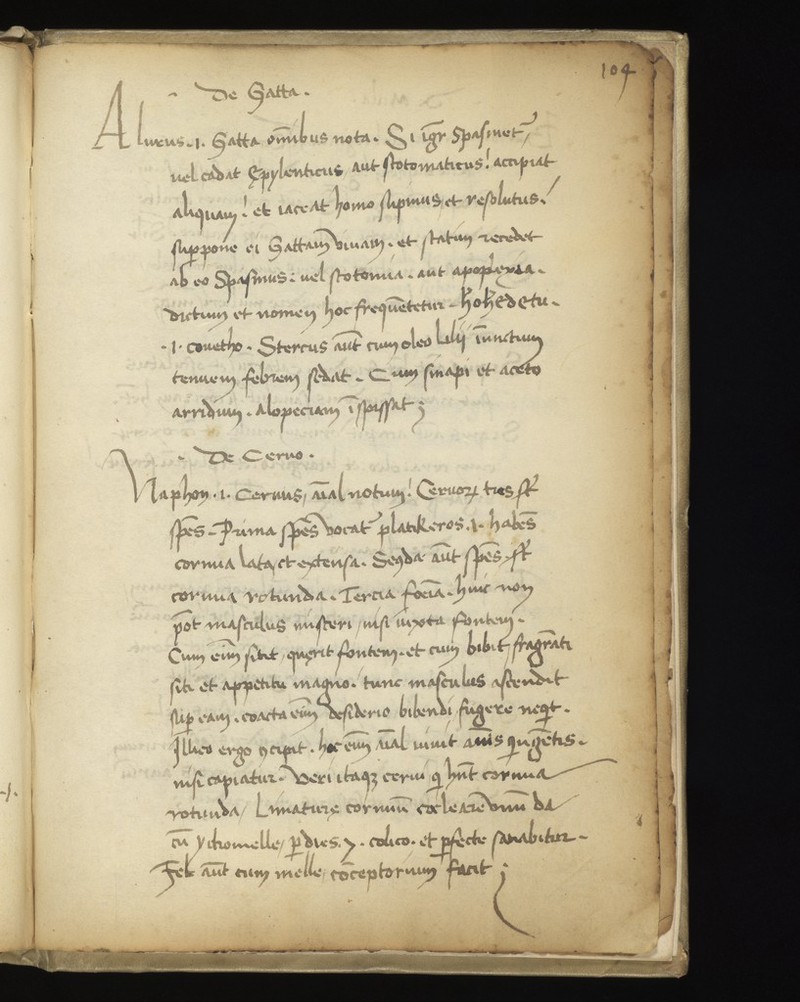 104
De Gatta.
Alurus .i. Gatta om̄ibus nota. Si igr̄ spasmet᷑,
vel cadat Epylenticus, aut scotomaticus! accipiat
aliquam! et iaceat homo supinus, et resolutus!
suppone ei Gattam vivam. et statim recedet
ab eo Spasmus: vel scotomia. aut apoplexia.
dictum et nomen hoc frequētetur.
.i. covetho. Stercus aūt cum oleo Lilij īunctum
tenuem febrem sedat. Cum sinapi et aceto
arridum. alopeciam īspissat;
De Cervo.
Naphon .i. Cervus, aīal notum! Cervoꝝ tres s̄t
sp̄es. Prima sp̄es vocat᷑ platikeros .i. habēs
cornua lata, et extensa. Se9da aūt sp̄es, s̄t
cornua rotunda. Tercia foēia. huic non
p̄ot masculus misceri, nisi iuxta fontem.
Cum eīm sitit, querit fontem. et cum bibit fragrāti
siti et appetitu magno. tunc masculus ascendit
suꝑ eam. coacta eīm desiderio bibendi, fugere neq̇t.
Illico ergo 9cipit. hoc eīm aīal vivit anīs qi̇ngētis.
nisi capiatur. Veri itaqꝫ cervi q̇ hn̄t cornua
rotunda, Limature cornuū coclearē unū da
cū ydromelle, ꝑ dies .7. colico. et ꝑfecte sanabitur.
Fel aūt cum melle, cōceptorium facit;